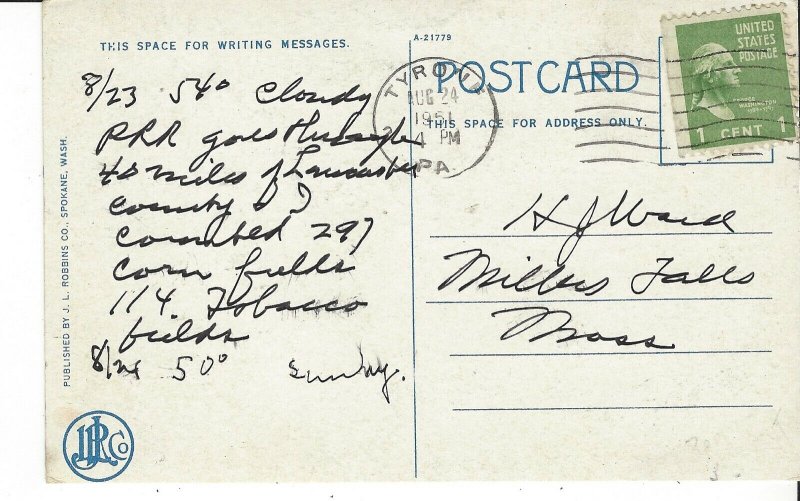 THIS SPACE FOR WRITING MESSAGES.
A-21779
POST CARD
THIS SPACE FOR ADDRESS ONLY.
UNITED
STATES
POSTAGE
GEORGE
WASHINGTON
1 CENT 1
TYRONE
AUG 24
1951
4 PM
PA.
8/23 54° Cloudy
PRR goes through
40 miles of Lancaster
County & I
counted 297
corn fields
114 Tobacco
fields
8/24 50° Sunny.
H J Ward
Millers Falls
Mass
PUBLISHED BY J. L. ROBBINS CO., SPOKANE, WASH.
JLR Co